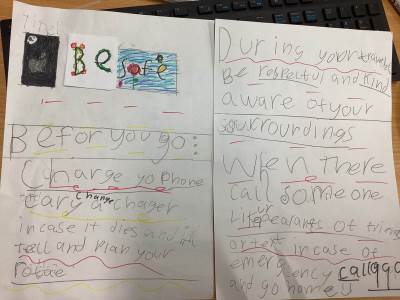 Title
Be
Safe
Befor you go:
Charge yo phone
Cary a chager
Change
incase it dies and
tell and plan your
During your
Be respectful and kind
aware of your
sourroundings
When there
call someone
Life
or text incase of
emergency call
and go home